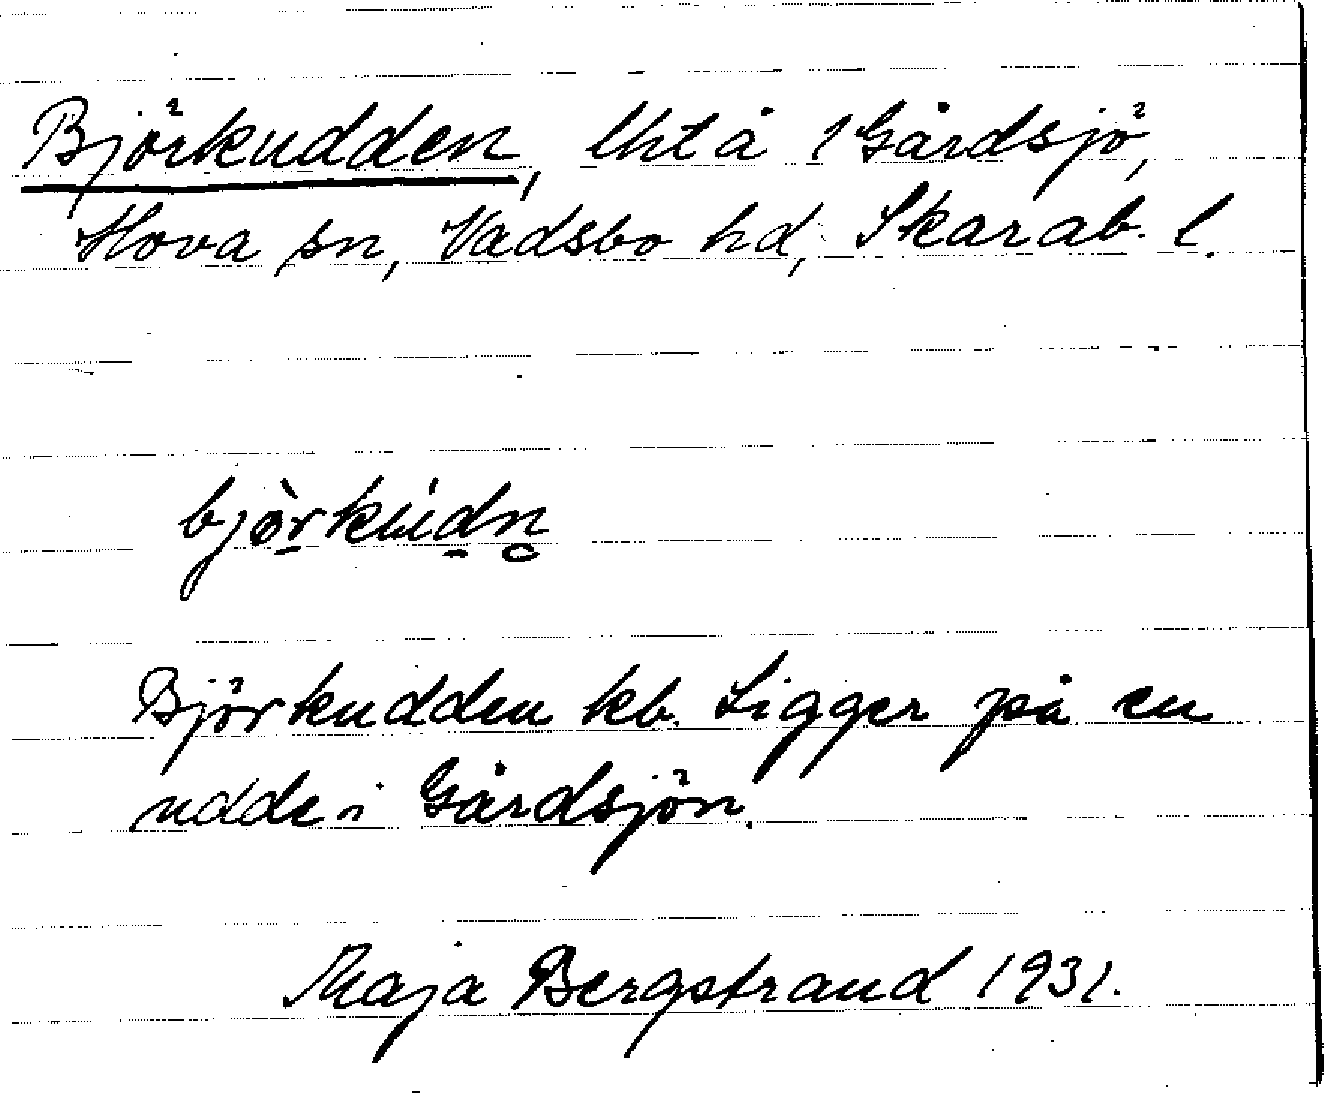 Björkudden, lht å 1 Gårdsjö,
Hova sn, Vadsbo hd, Skarab. l.
bjö̀rkúdn̥
Björkudden kb. Ligger på en
udde i Gårdsjön.
Maja Bergstrand 1931.